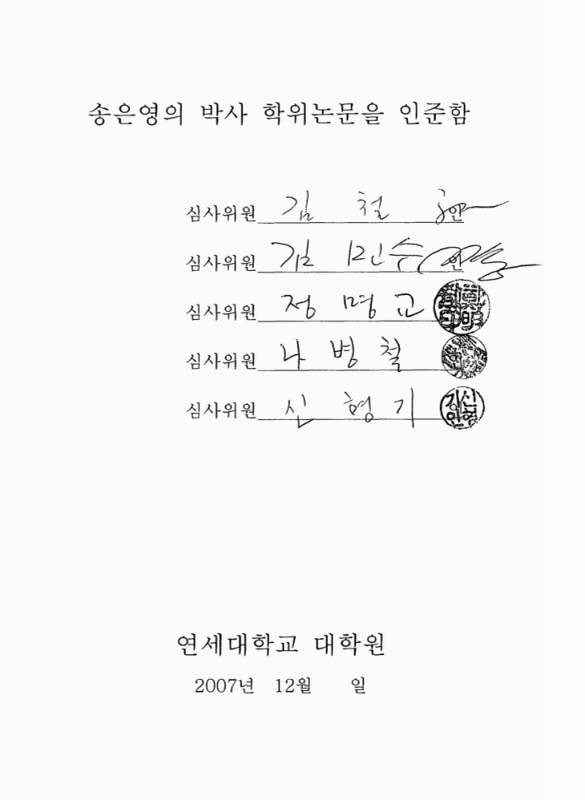 송은영의 박사 학위논문을 인준함
심사위원 김 철 인
심사위원 김 민수 인
심사위원 정 명 교
심사위원 나 병 철
심사위원 신 형 기 신형기인
연세대학교 대학원
2007년 12월 일